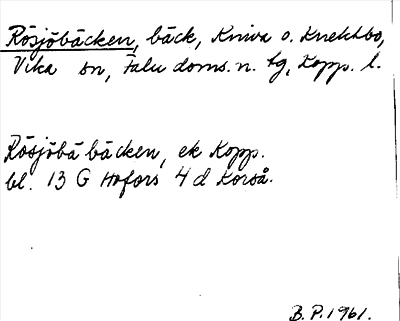 Rösjöbäcken, bäck, Kniva o. Knektbo,
Vika sn, Falu doms. n. tg, Kopp. l.
Rösjöbäbäcken, ek Kopp.
bl. 13 G Hofors 4 d Korså.
B.P. 1961.